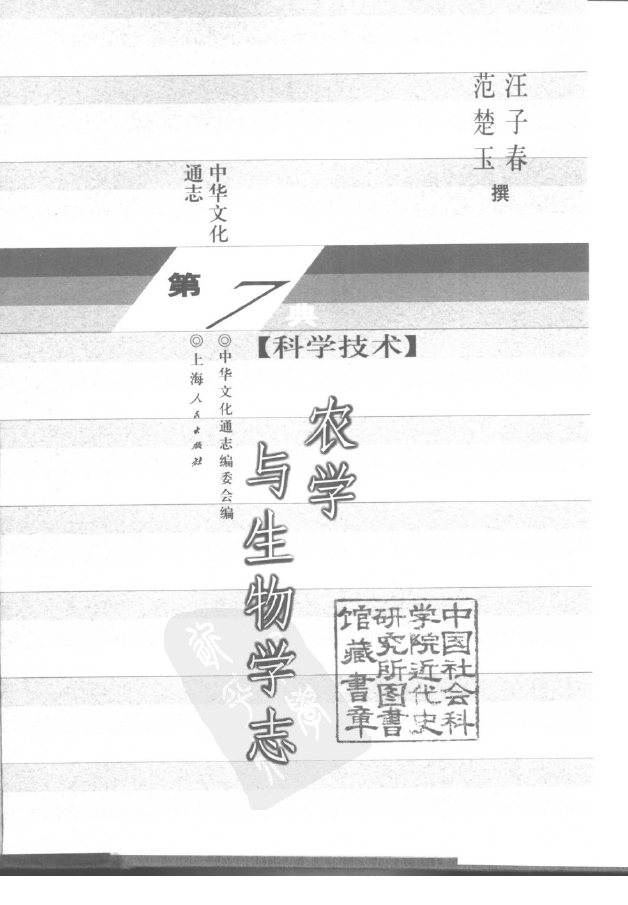 汪子春
范楚玉
撰
中华文化
通志
第7典
【科学技术】
◎中华文化通志编委会编
◎上海人民出版社
农学
与生物学志
中国社会科
学院近代史
研究所图书
馆藏书章